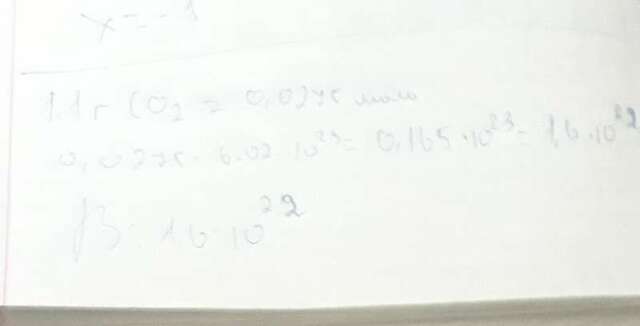 x = -1
1.1 г CO₂ = 0,0275 моль
0,0275 · 6.02 · 10²³ = 0,165 · 10²³ = 1,6 · 10²²
В: 1,6 · 10²²